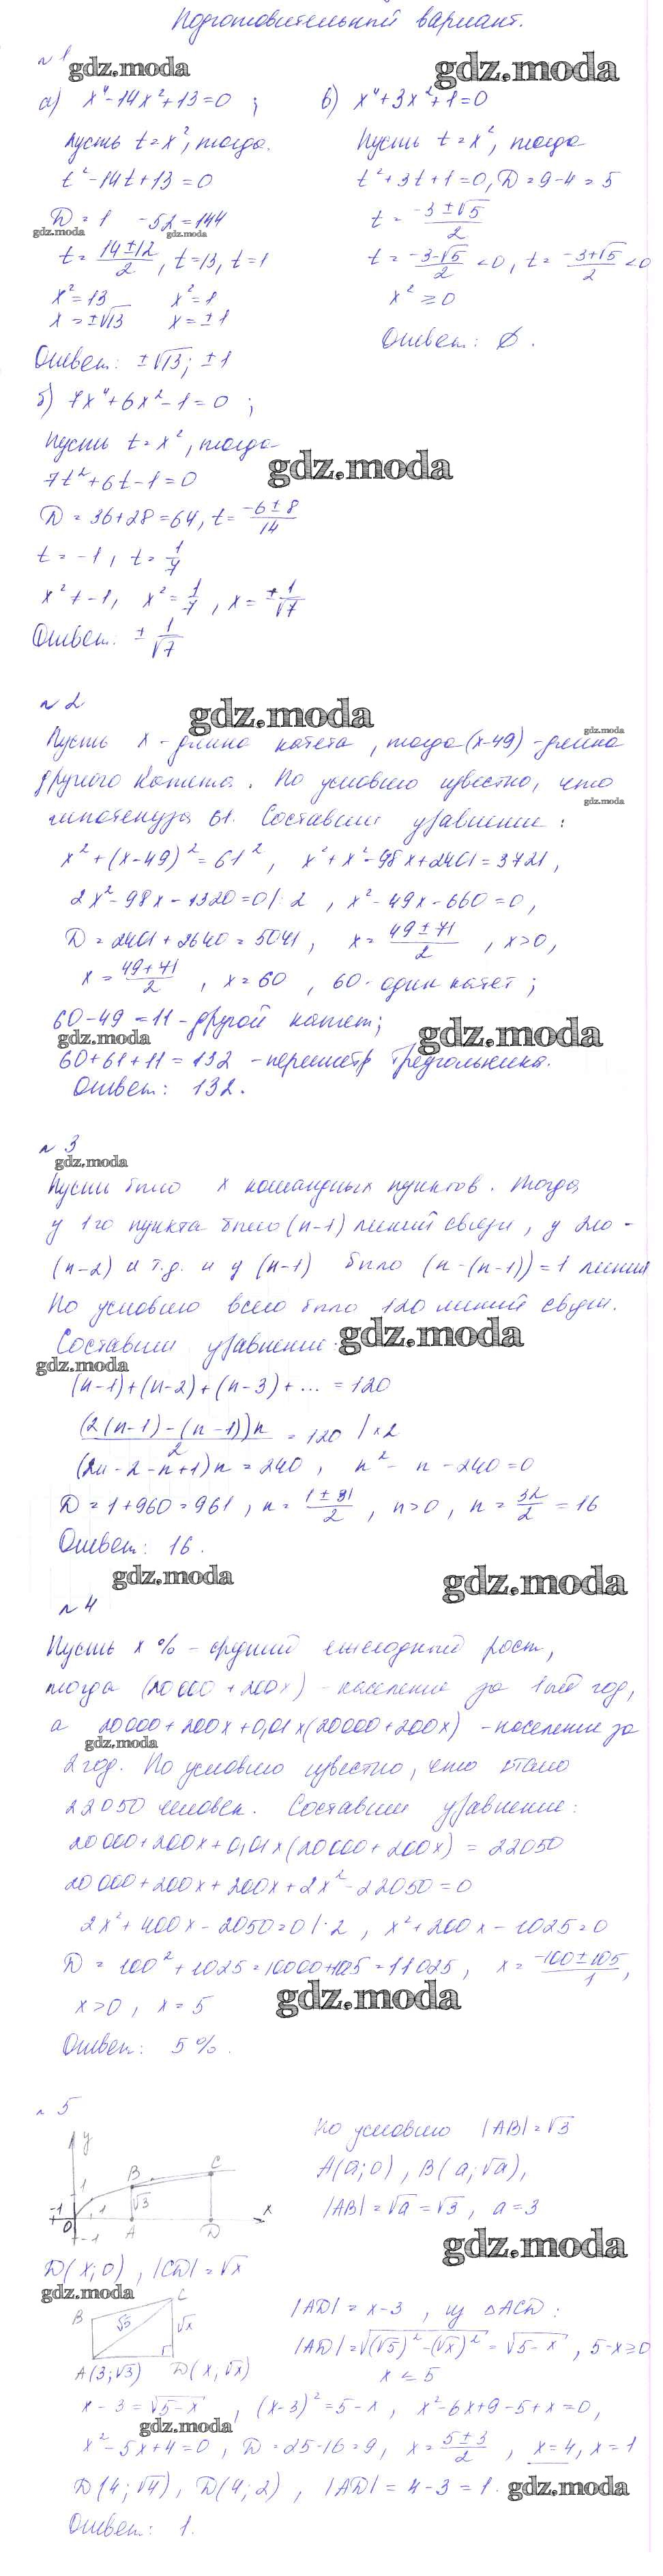 Подготовительный вариант.
№1
gdz.moda
gdz.moda
а) x⁴-14x²+13=0 ;
Пусть t=x², тогда.
t²-14t+13=0
D=1 -52=144
gdz.moda
gdz.moda
t=(14±12)/2, t=13, t=1
x²=13 x²=1
x=±√13 x=±1
Ответ: ±√13; ±1
в) x⁴+3x²+1=0
Пусть t=x², тогда
t²+3t+1=0, D=9-4=5
t=(-3±√5)/2
t=(-3-√5)/2<0, t=(-3+√5)/2<0
x²≥0
Ответ: Ø.
б) 7x⁴+6x²-1=0 ;
Пусть t=x², тогда
gdz.moda
7t²+6t-1=0
D=36+28=64, t=(-6±8)/14
t=-1, t=1/7
x²≠-1, x²=1/7, x=±1/√7
Ответ: ±1/√7
№2
gdz.moda
gdz.moda
Пусть x-длина катета, тогда (x-49)-длина
другого катета. По условию известно, что
gdz.moda
гипотенуза 61. Составим уравнение:
x²+(x-49)²=61², x²+x²-98x+2401=3721,
2x²-98x-1320=0|:2, x²-49x-660=0,
D=2401+2640=5041, x=(49±71)/2, x>0,
x=(49+71)/2, x=60, 60-один катет;
60-49=11-другой катет;
gdz.moda
gdz.moda
60+61+11=132 -периметр треугольника.
Ответ: 132.
№3
gdz.moda
Пусть было x командных пунктов. Тогда
у 1го пункта было (n-1) линий связи, у 2го-
(n-2) и т.д. и у (n-1) было (n-(n-1))=1 линия
По условию всего было 120 линий связи.
Составим уравнение:
gdz.moda
gdz.moda
(n-1)+(n-2)+(n-3)+...=120
(2(n-1)-(n-1))n/2=120 |×2
(2n-2-n+1)n=240, n²-n-240=0
D=1+960=961, n=(1±31)/2, n>0, n=32/2=16
Ответ: 16.
gdz.moda
gdz.moda
№4
Пусть x%-средний ежегодный рост,
тогда (20000+200x)-население за 1ый год,
а 20000+200x+0,01x(20000+200x)-население за
gdz.moda
2 год. По условию известно, что стало
22050 человек. Составим уравнение:
20000+200x+0,01x(20000+200x)=22050
20000+200x+200x+2x²-22050=0
2x²+400x-2050=0|:2, x²+200x-1025=0
D=100²+1025=10000+1025=11025, x=(-100±105)/1,
x>0, x=5
gdz.moda
Ответ: 5%.
№5
y
1
B
C
√3
-1
0
-1
1
A
D
x
По условию |AB|=√3
A(a;0), B(a;√a),
|AB|=√a=√3, a=3
gdz.moda
D(x;0), |CD|=√x
gdz.moda
C
B
√5
√x
A(3;√3) D(x,√x)
|AD|=x-3, из △ACD:
|AD|=√((√5)²-(√x)²)=√(5-x), 5-x≥0
x≤5
x-3=√(5-x), (x-3)²=5-x, x²-6x+9-5+x=0,
gdz.moda
x²-5x+4=0, D=25-16=9, x=(5±3)/2, x=4, x=1
D(4;√4), D(4;2), |AD|=4-3=1.
gdz.moda
Ответ: 1.